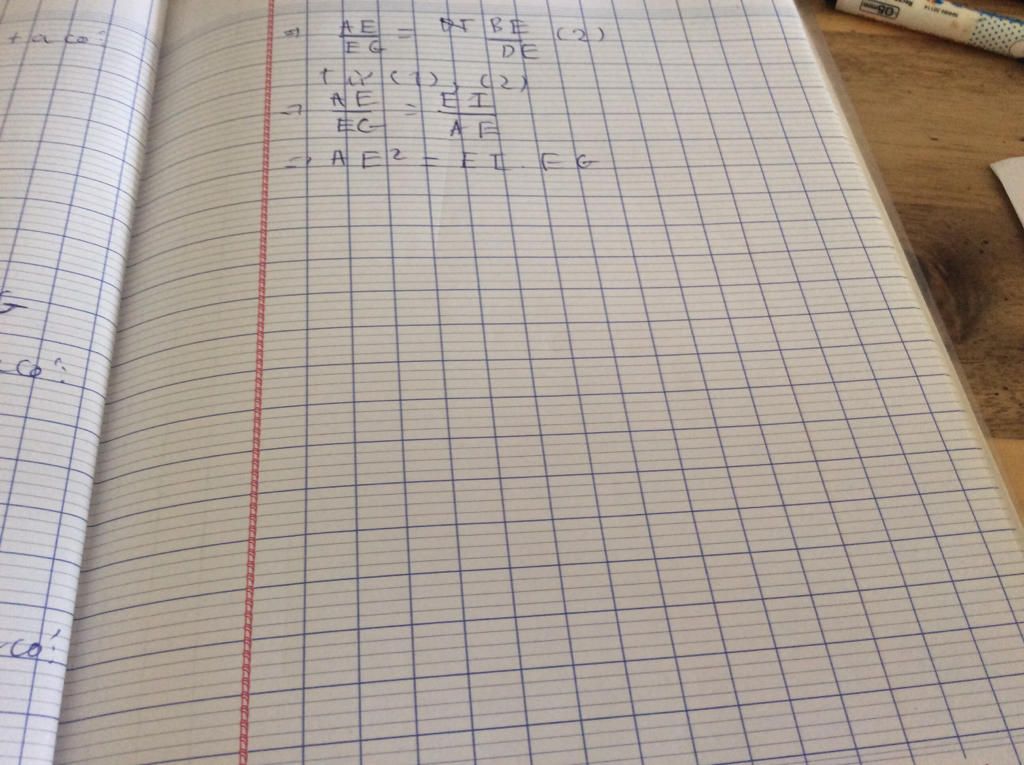 + a có:
⇒ AE/EG = BE/DE (2)
từ (1), (2)
⇒ AE/EG = EI/AE
⇒ AE² = EI . EG
G
có:
có: